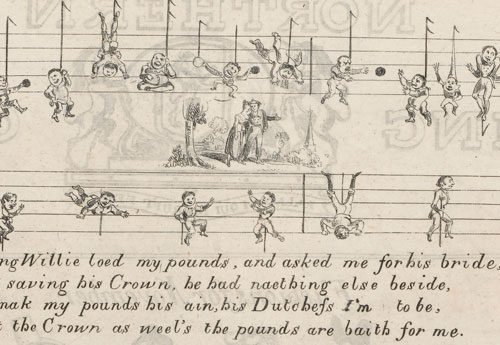 ngWillie loed my pounds, and asked me for his bride,
saving his Crown, he had naething else beside,
mak my pounds his ain, his Dutchefs I'm to be,
t the Crown as weel's the pounds are baith for me.